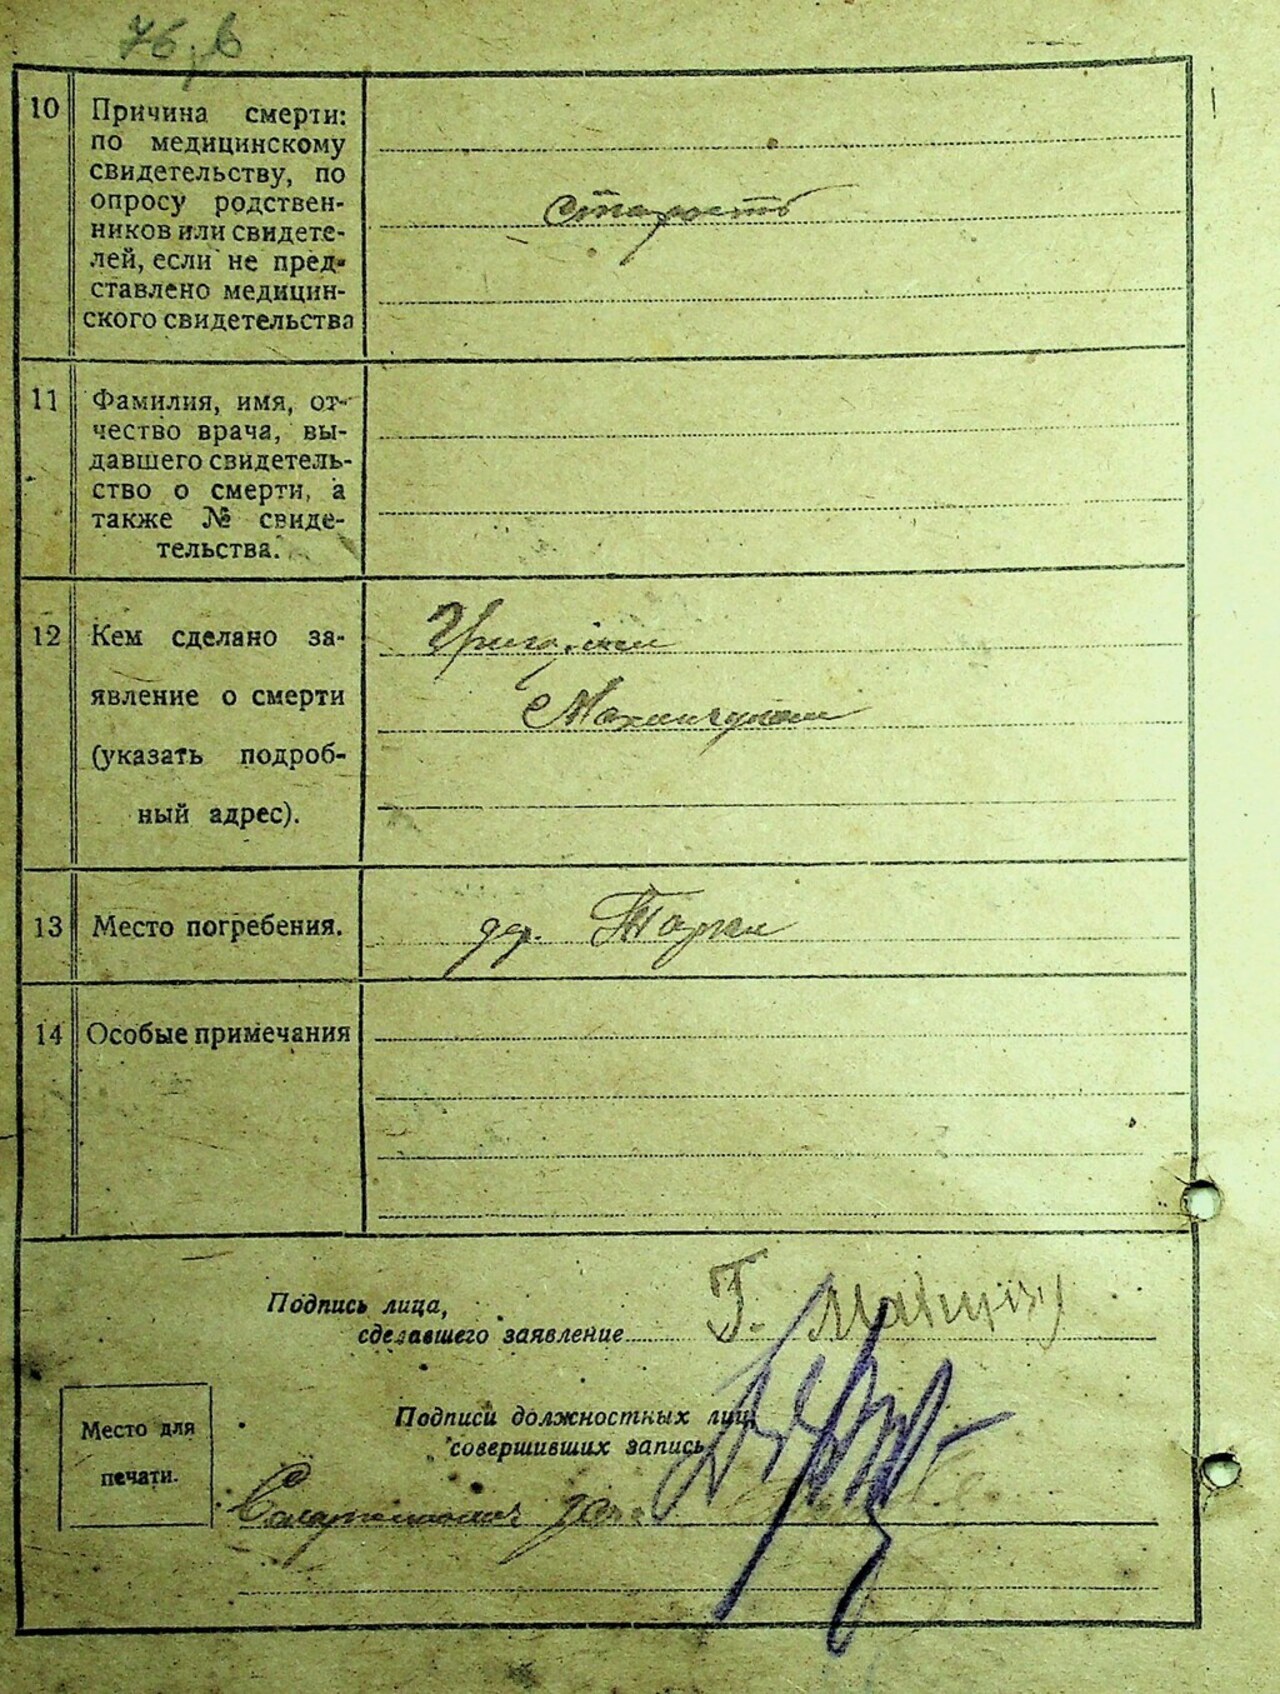 76,6
10 Причина смерти:
по медицинскому
свидетельству, по
опросу родствен-
ников или свидете-
лей, если не пред-
ставлено медицин-
ского свидетельства
старость
11 Фамилия, имя, от-
чество врача, вы-
давшего свидетель-
ство о смерти, а
также № свиде-
тельства.
12 Кем сделано за-
явление о смерти
(указать подроб-
ный адрес).
13 Место погребения.
дер.
14 Особые примечания
Подпись лица,
сделавшего заявление
Г.
Подписи должностных лиц,
совершивших запись
Место для
печати.